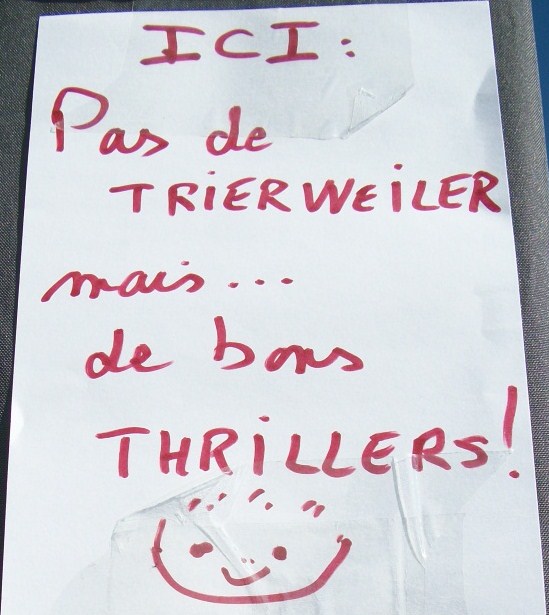 ICI:
Pas de
TRiERWEiLER
mais...
de bons
THRiLLERS!